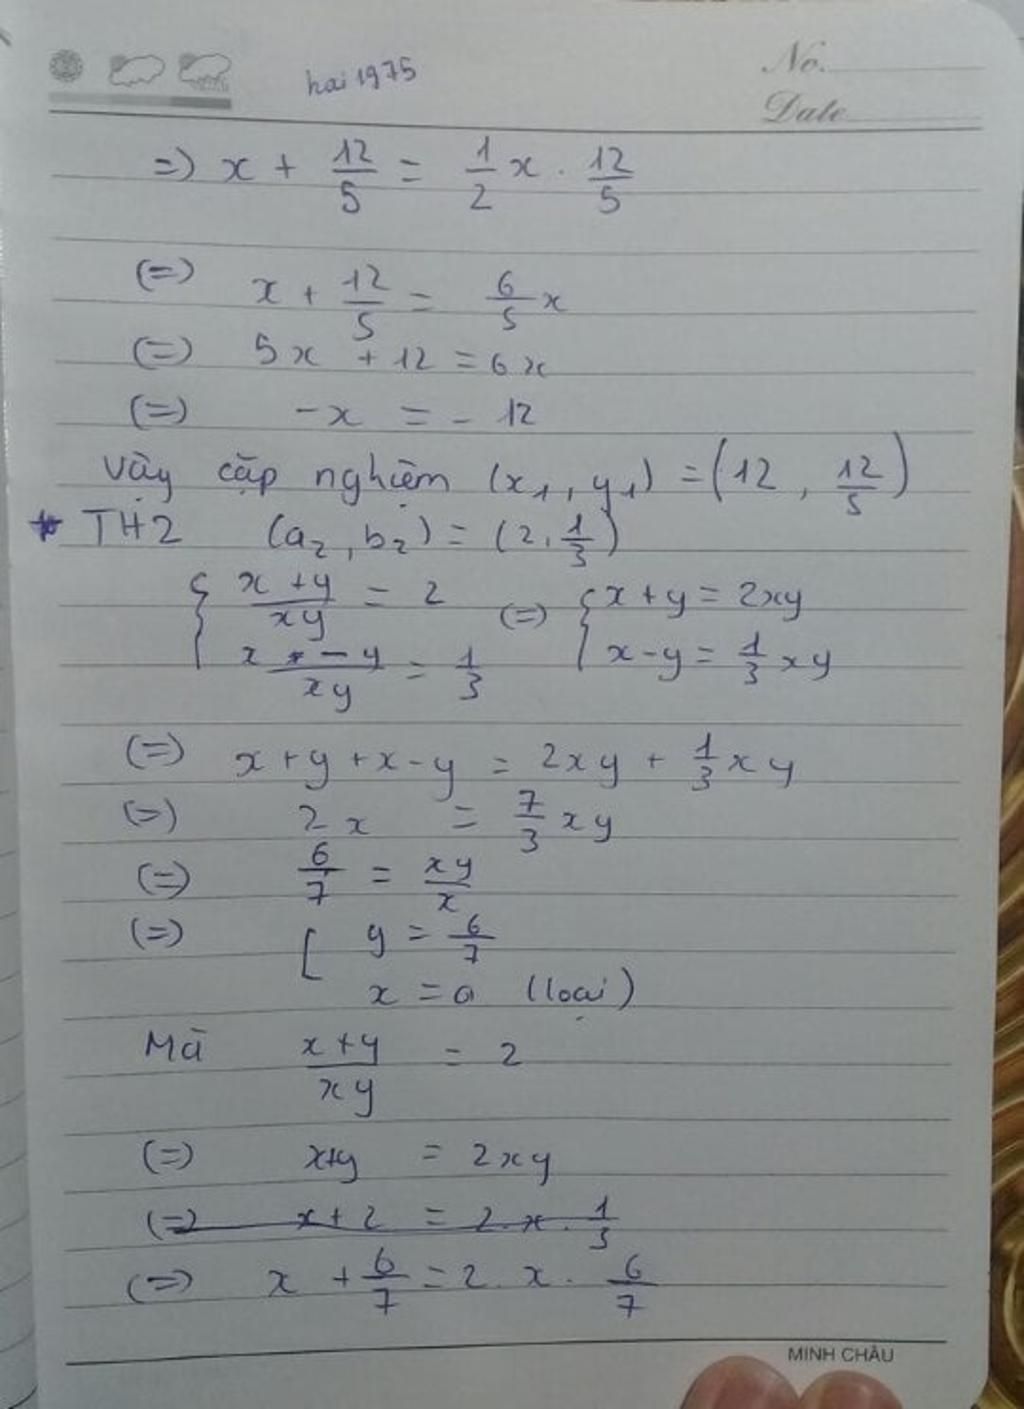 hai 1975
No.
Date
=) x + 12/5 = 1/2 x . 12/5
(=) x + 12/5 = 6/5 x
(=) 5x + 12 = 6x
(=) -x = - 12
Vậy cặp nghiệm (x₁, y₁) = (12, 12/5)
* TH2 (a₂, b₂) = (2, 1/3)
{ (x+y)/(xy) = 2 (=) { x+y = 2xy
(x - y)/(xy) = 1/3 x-y = 1/3 xy
(=) x+y+x-y = 2xy + 1/3 xy
(=) 2x = 7/3 xy
(=) 6/7 = xy/x
(=) [ y = 6/7
x = 0 (loại)
Mà (x+y)/(xy) = 2
(=) x+y = 2xy
(=) x+2 = 2.x.1/3
(=) x + 6/7 = 2.x. 6/7
MINH CHÂU